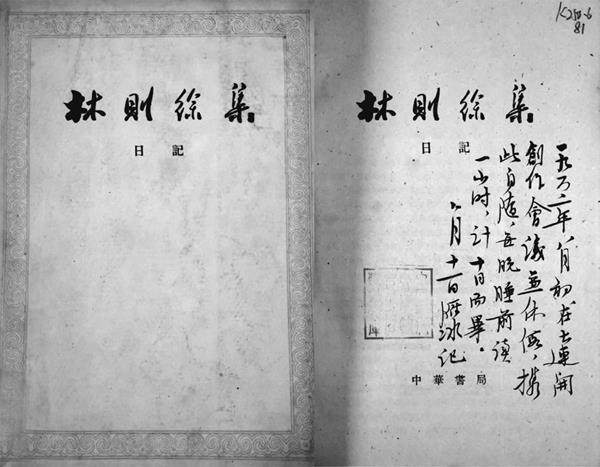 林則徐集
日記
林則徐集
日記
一九六二年八月初在大連開
創作會議並休假，携
此自隨，每晚睡前讀
一小时，计十日而畢。
八月十一日雁冰记
中華書局
81